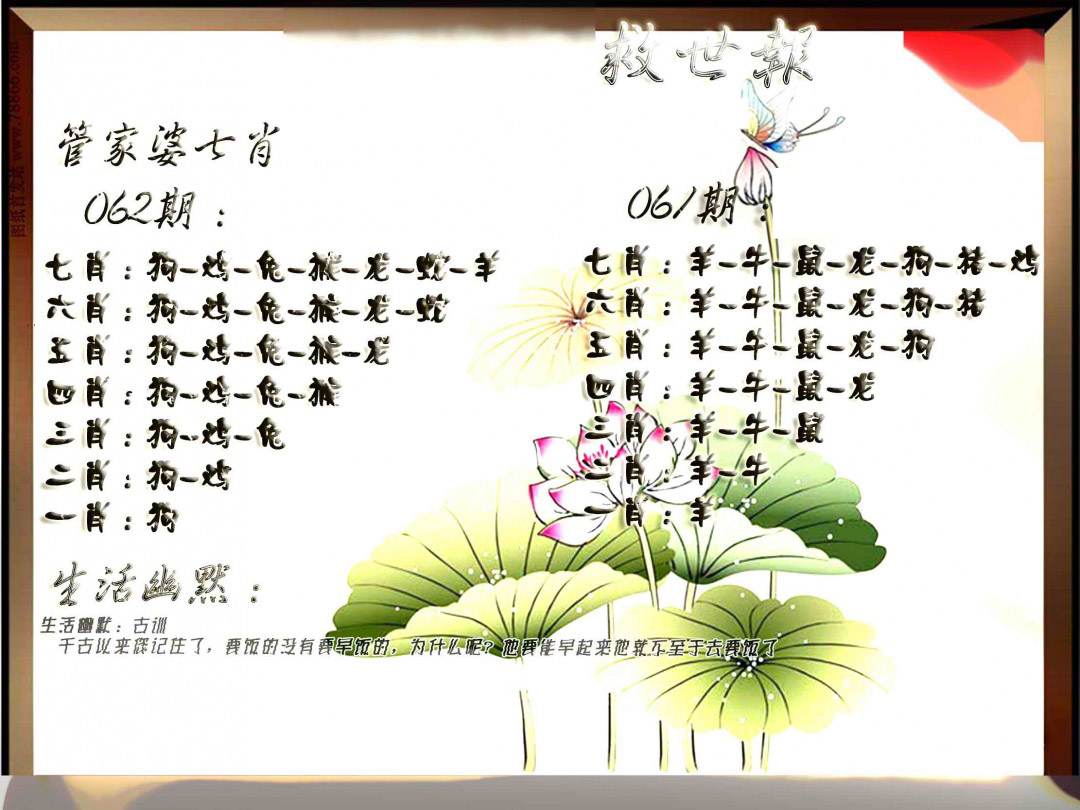 救世報
管家婆七肖
062期：
七肖：狗-鸡-兔-猴-龙-蛇-羊
六肖：狗-鸡-兔-猴-龙-蛇
五肖：狗-鸡-兔-猴-龙
四肖：狗-鸡-兔-猴
三肖：狗-鸡-兔
二肖：狗-鸡
一肖：狗
061期：
七肖：羊-牛-鼠-龙-狗-猪-鸡
六肖：羊-牛-鼠-龙-狗-猪
五肖：羊-牛-鼠-龙-狗
四肖：羊-牛-鼠-龙
三肖：羊-牛-鼠
二肖：羊-牛
一肖：羊
生活幽默：
生活幽默：古训
千古以来都记住了，要饭的没有要早饭的，为什么呢？他要能早起来他就不至于去要饭了
图纸首发站 www.78866.com